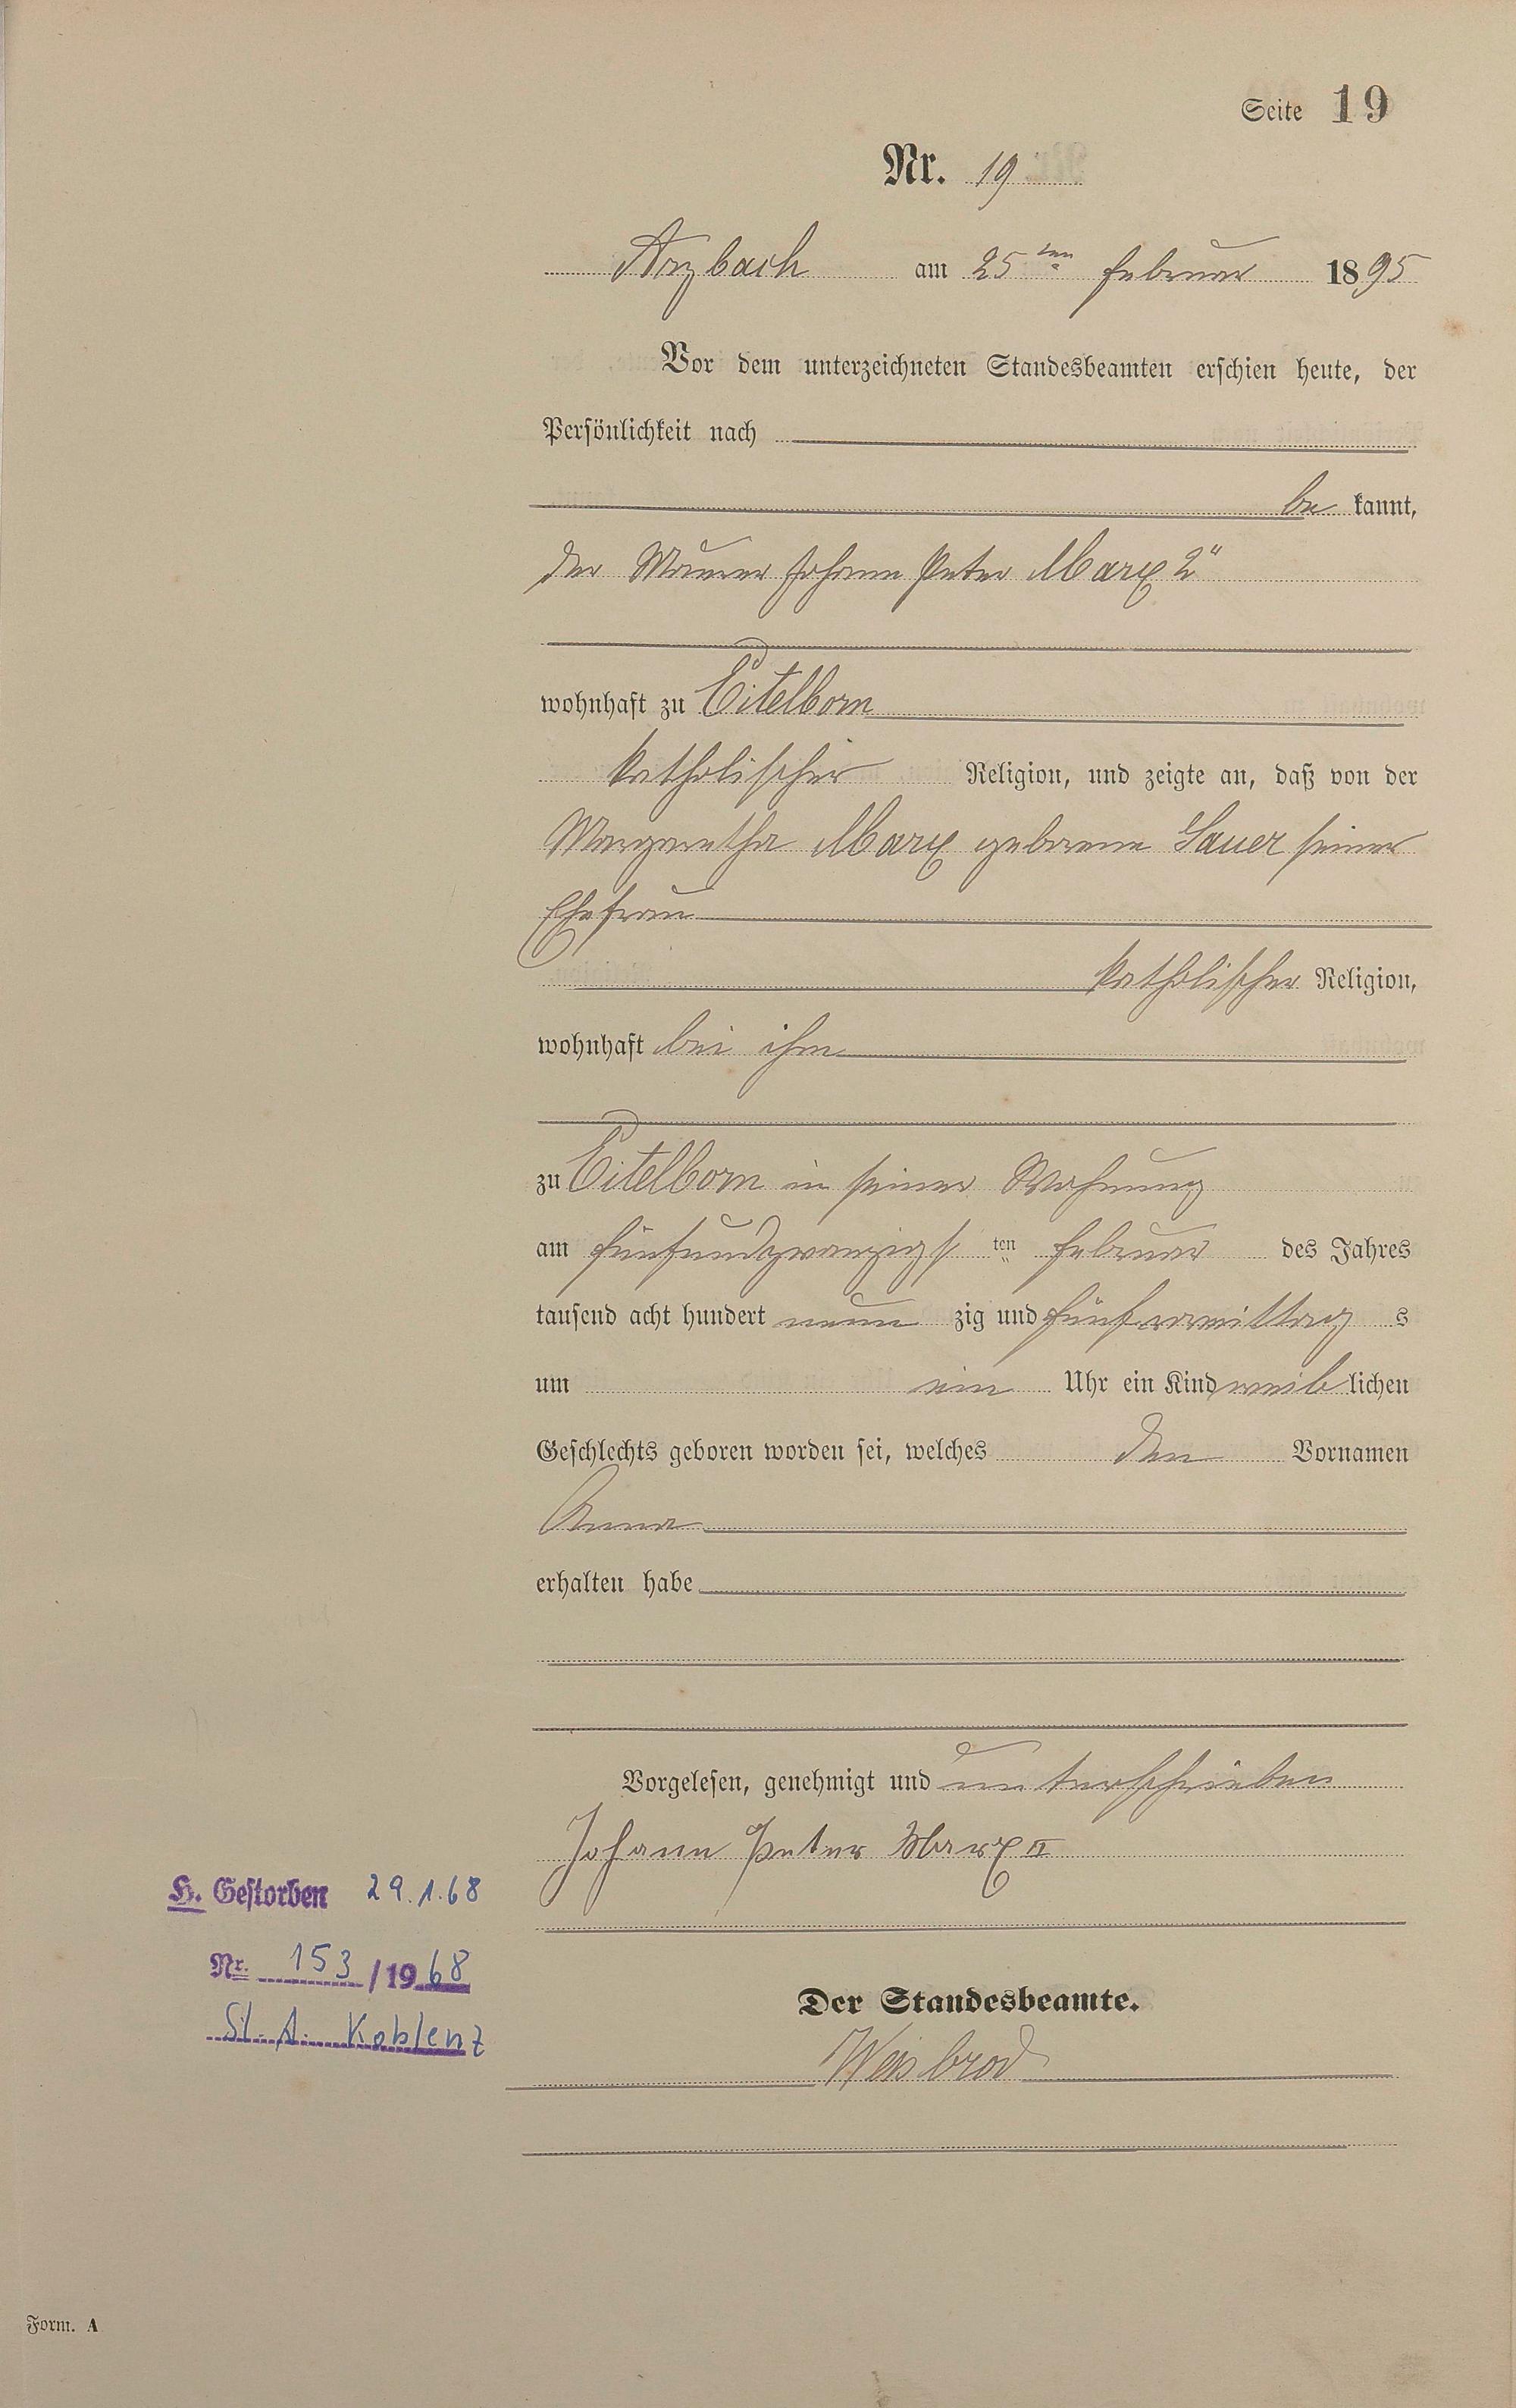 Seite 19
Nr. 19
Arzbach am 25ten Februar 1895
Vor dem unterzeichneten Standesbeamten erschien heute, der
Persönlichkeit nach
be kannt,
der Maurer Johann Peter Marx 2"
wohnhaft zu Eitelborn
katholischer Religion, und zeigte an, daß von der
Margaretha Marx geborene Sauer seiner
Ehefrau
katholischer Religion,
wohnhaft bei ihm
zu Eitelborn in seiner Wohnung
am fünfundzwanzigs ten Februar des Jahres
tausend acht hundert neun zig und fünf vormittag s
um ein Uhr ein Kind weib lichen
Geschlechts geboren worden sei, welches den Vornamen
Anna
erhalten habe
Vorgelesen, genehmigt und unterschrieben
Johann Peter Marx II
H. Gestorben 29.1.68
Nr. 153/1968
St. A. Koblenz
Der Standesbeamte.
Weisbrod
Form. A